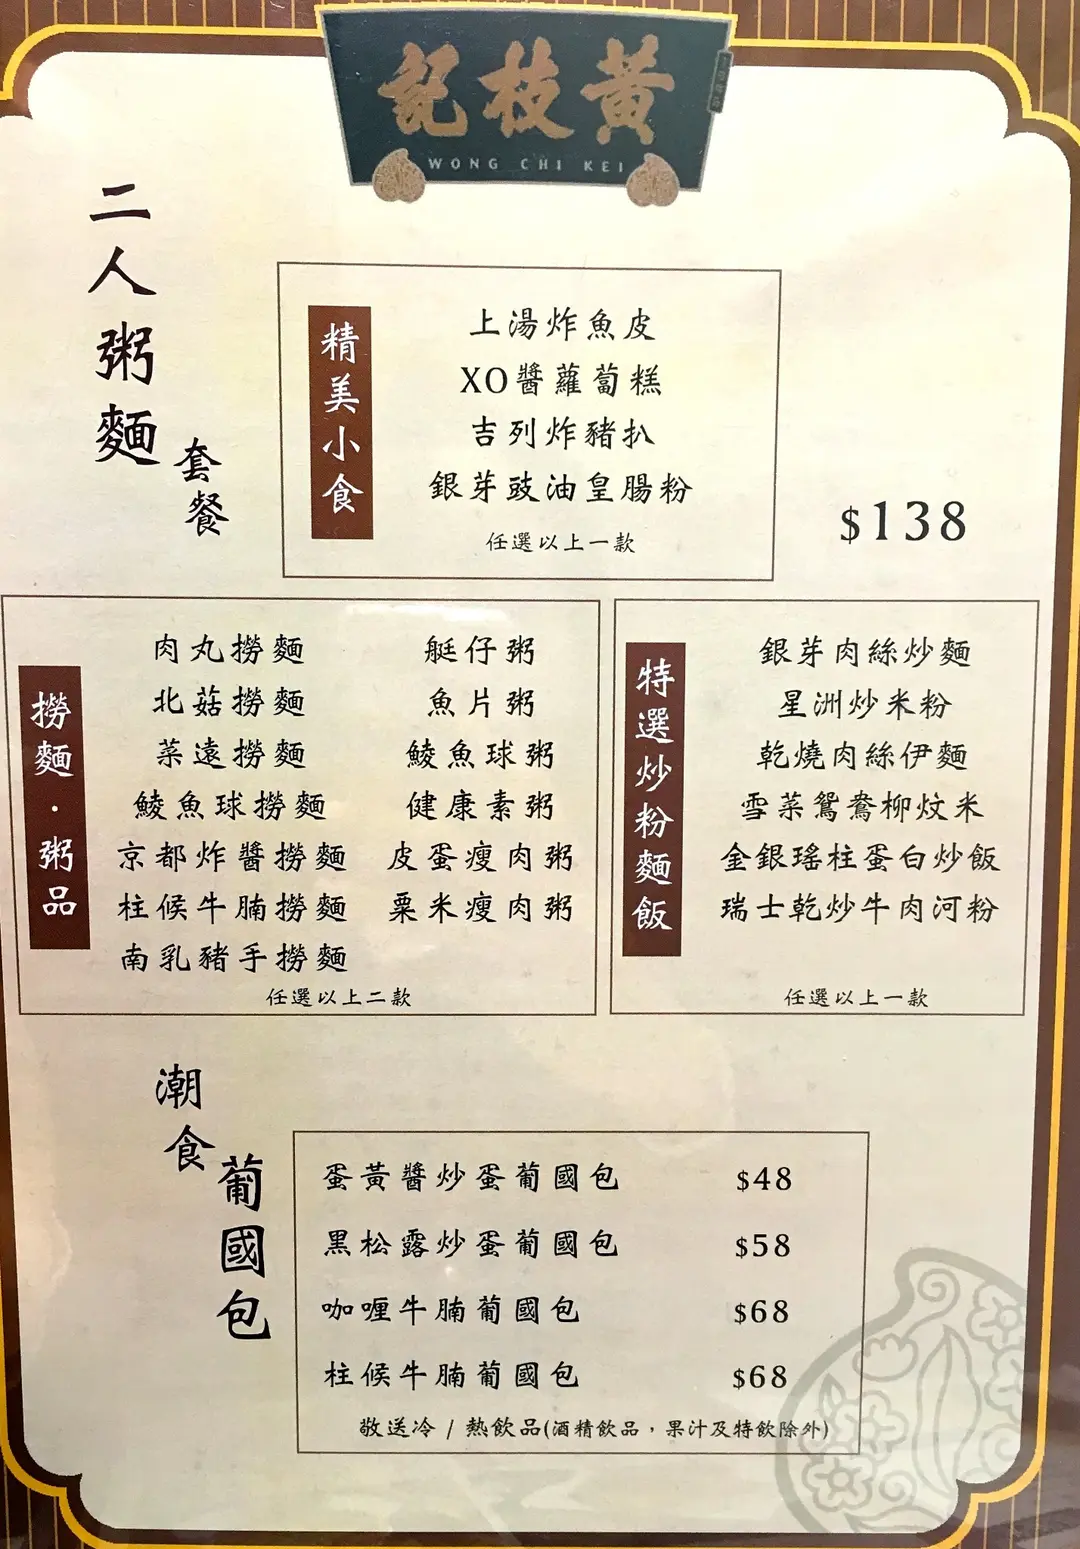 黃枝記
WONG CHI KEI
二人粥麵
套餐
精美小食
上湯炸魚皮
XO醬蘿蔔糕
吉列炸豬扒
銀芽豉油皇腸粉
任選以上一款
$138
撈麵·粥品
肉丸撈麵
北菇撈麵
菜遠撈麵
鯪魚球撈麵
京都炸醬撈麵
柱候牛腩撈麵
南乳豬手撈麵
艇仔粥
魚片粥
鯪魚球粥
健康素粥
皮蛋瘦肉粥
粟米瘦肉粥
任選以上二款
特選炒粉麵飯
銀芽肉絲炒麵
星洲炒米粉
乾燒肉絲伊麵
雪菜鴛鴦柳炆米
金銀瑤柱蛋白炒飯
瑞士乾炒牛肉河粉
任選以上一款
潮食
葡國包
蛋黃醬炒蛋葡國包 $48
黑松露炒蛋葡國包 $58
咖喱牛腩葡國包 $68
柱候牛腩葡國包 $68
敬送冷 / 熱飲品(酒精飲品，果汁及特飲除外)